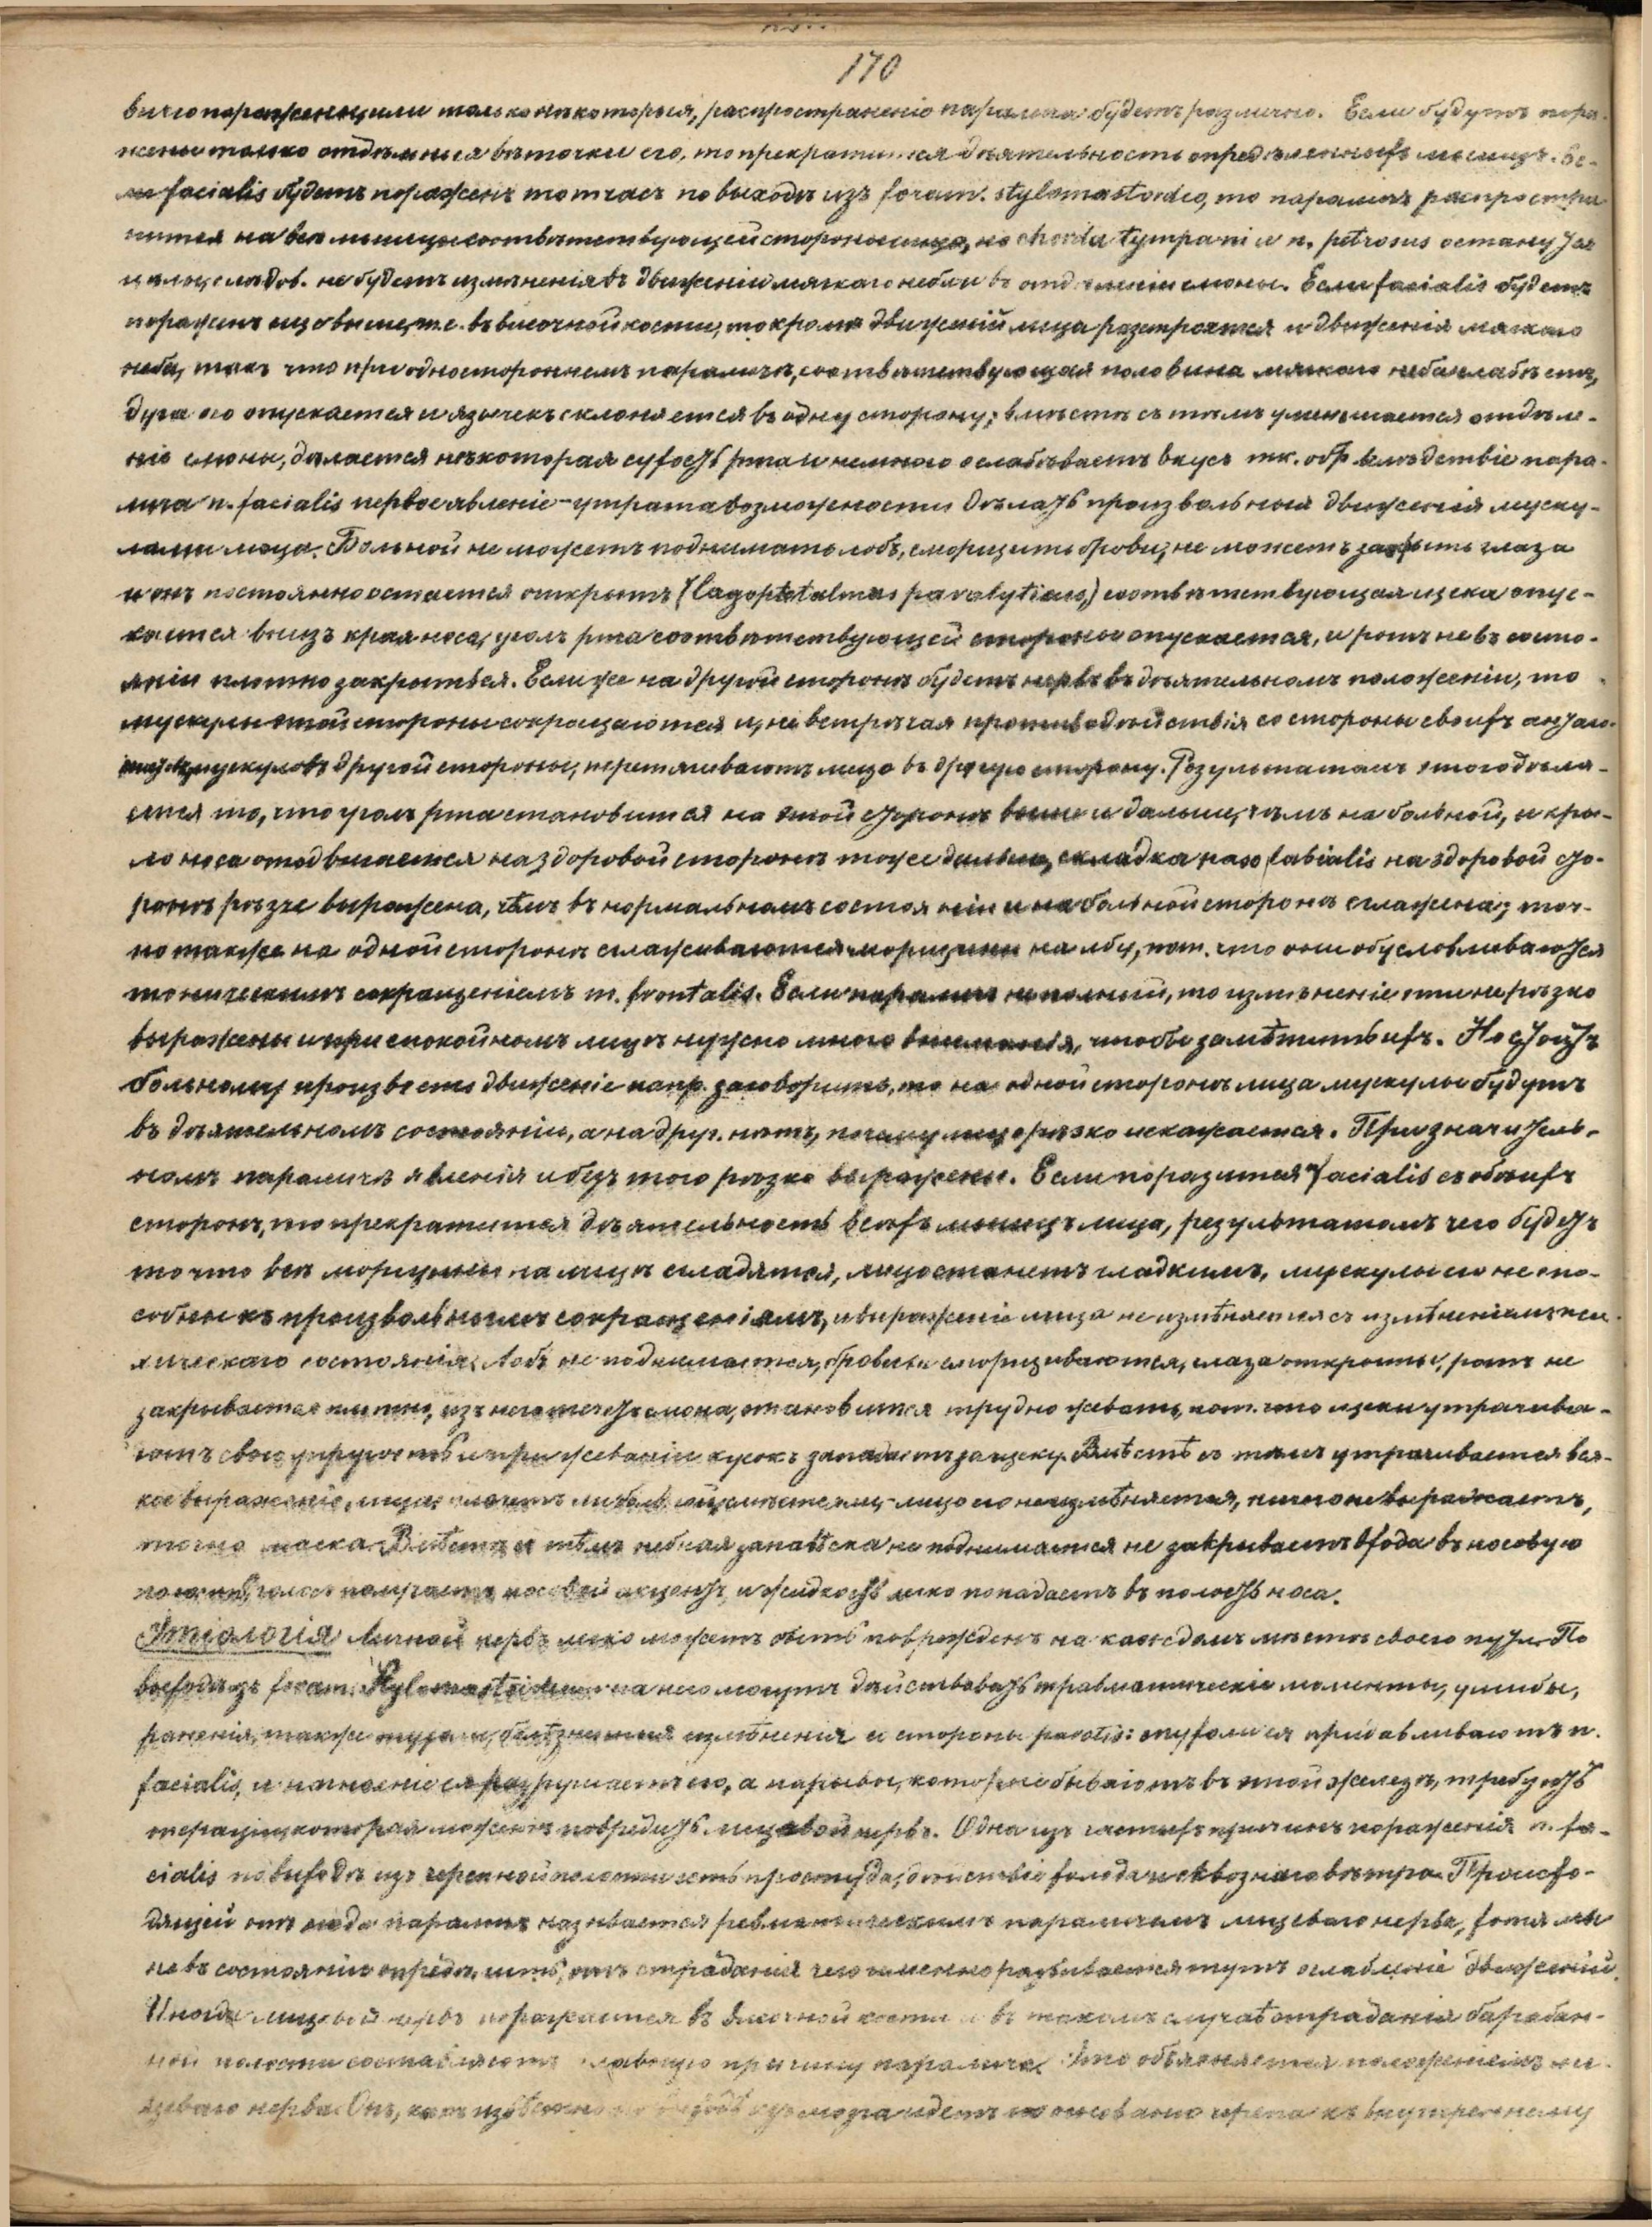 170
вичго пораженіи или только нѣкоторыя, распространеніе паралича будетъ различно. Если будутъ пора-
жены только отдѣльныя вѣточки его, то прекратится дѣятельность опредѣленныхъ мышцъ. Ес-
ли facialis будетъ пораженъ тотчасъ по выходѣ изъ foram. stylomastoideo, то параличъ распростра-
нится на всѣ мышцы соотвѣтствующей стороны лица, но chorda tympani и n. petrosus останутся
цѣлы, слѣдов. не будетъ измѣненія въ движеніи мягкаго неба и въ отдѣленіи слюны. Если facialis будетъ
пораженъ еще выше, т.е. въ височной кости, то кромѣ движеній лица разстроятся и движенія мягкаго
неба, такъ что при одностороннемъ параличѣ, соотвѣтствующая половина мягкаго неба слабѣетъ,
дуга его опускается и язычекъ склоняется въ одну сторону; вмѣстѣ съ тѣмъ уменьшается отдѣле-
ніе слюны, дѣлается нѣкоторая сухость рта и немного ослабѣваетъ вкусъ. тк. обр. вслѣдствіе пара-
лича n. facialis первое явленіе - утрата возможности дѣлать произвольныя движенія муску-
лами лица. Больной не можетъ поднимать лобъ, сморщить брови, не можетъ закрыть глаза
и онъ постоянно остается открытъ (lagophtalmus paralyticus,) соотвѣтствующая щека опус-
кается внизъ края носа, уголъ рта соотвѣтствующей стороны опускается, и ротъ не въ состо-
яніи плотно закрыться. Если же на другой сторонѣ будетъ нервъ въ дѣятельномъ положеніи, то
мускулы этой стороны сокращаются и, не встрѣчая противодѣйствія со стороны своихъ антаго-
мускуловъ другой стороны, перетягиваютъ лицо въ другую сторону. Результатомъ этого дѣла-
ется то, что уголъ рта становится на этой сторонѣ выше и дальше, чѣмъ на больной, и кры-
ло носа отодвигается на здоровой сторонѣ тоже дальше, складка naso labialis на здоровой сто-
ронѣ рѣзче выражена, чѣмъ въ нормальномъ состояніи и на больной сторонѣ сглажена; точ-
но также на одной сторонѣ сглаживаются морщины на лбу, пот. что они обусловливаются
тоническимъ сокращеніемъ m. frontalis. Если параличъ не полный, то измѣненіе эти не рѣзко
выражены и при спокойномъ лицѣ нужно много вниманія, чтобы замѣтить ихъ. Но стоитъ
больному произвести движеніе напр. заговорить, то на одной сторонѣ лица мускулы будутъ
въ дѣятельномъ состояніи, а на друг. нѣтъ, почему лицо рѣзко искажается. При значитель-
номъ параличѣ явленія и безъ того рѣзко выражены. Если поразится n. facialis съ обѣихъ
сторонъ, то прекратится дѣятельность всѣхъ мышцъ лица, результатомъ чего будетъ
то что всѣ морщины на лицѣ сгладятся, лицо станетъ гладкимъ, мускулы его не спо-
собны къ произвольнымъ сокращеніямъ, и выраженіе лица не измѣняется съ измѣненіемъ пси-
хическаго состоянія; лобъ не поднимается, брови не сморщиваются, глаза открыты, ротъ не
закрывается плотно, изъ него течетъ слюна, становится трудно жевать, пот. что щеки утрачива-
ютъ свою упругость и при жеваніи кусокъ западаетъ за щеку. Вмѣстѣ съ тѣмъ утрачивается вся-
кое выраженіе лица; плачетъ ли больной, смѣется ли - лицо его не измѣняется, ничего не выражаетъ,
точно маска. Вмѣстѣ съ тѣмъ небная занавѣска не поднимается не закрываетъ входа въ носовую
полость, голосъ получаетъ носовой акцентъ и жидкость легко попадаетъ въ полость носа.
Этіологія Личной нервъ легко можетъ быть поврежденъ на каждомъ мѣстѣ своего пути. По
выходѣ изъ foram. Stylomastoideum на него могутъ дѣйствовать травматическіе моменты, ушибы,
раненія, также болѣзненныя измѣненія со стороны parotis: опухоли ея придавливаютъ n.
facialis, и нагноеніе ея разрушаетъ его, а нарывы, которые бываютъ въ этой железѣ, требуютъ
операціи, которая можетъ повредить лицевой нервъ. Одна изъ частыхъ причинъ пораженія n. fa-
cialis по выходѣ изъ черепной полости есть простуда; дѣйствіе холода и сквознаго вѣтра. Происхо-
дящей отъ сюда параличъ называется ревматическимъ параличемъ лицеваго нерва, хотя мы
не въ состояніи опредѣлить, отъ страданія чего именно развивается тутъ ослабленіе движеній.
Иногда лицевой нервъ поражается въ височной кости и въ такомъ случаѣ страданія барабан-
ной полости составляютъ главную причину паралича. Это объясняется положеніемъ ли-
цеваго нерва. Онъ, какъ извѣстно по выходѣ изъ мозга идетъ по основанію черепа къ внутреннему